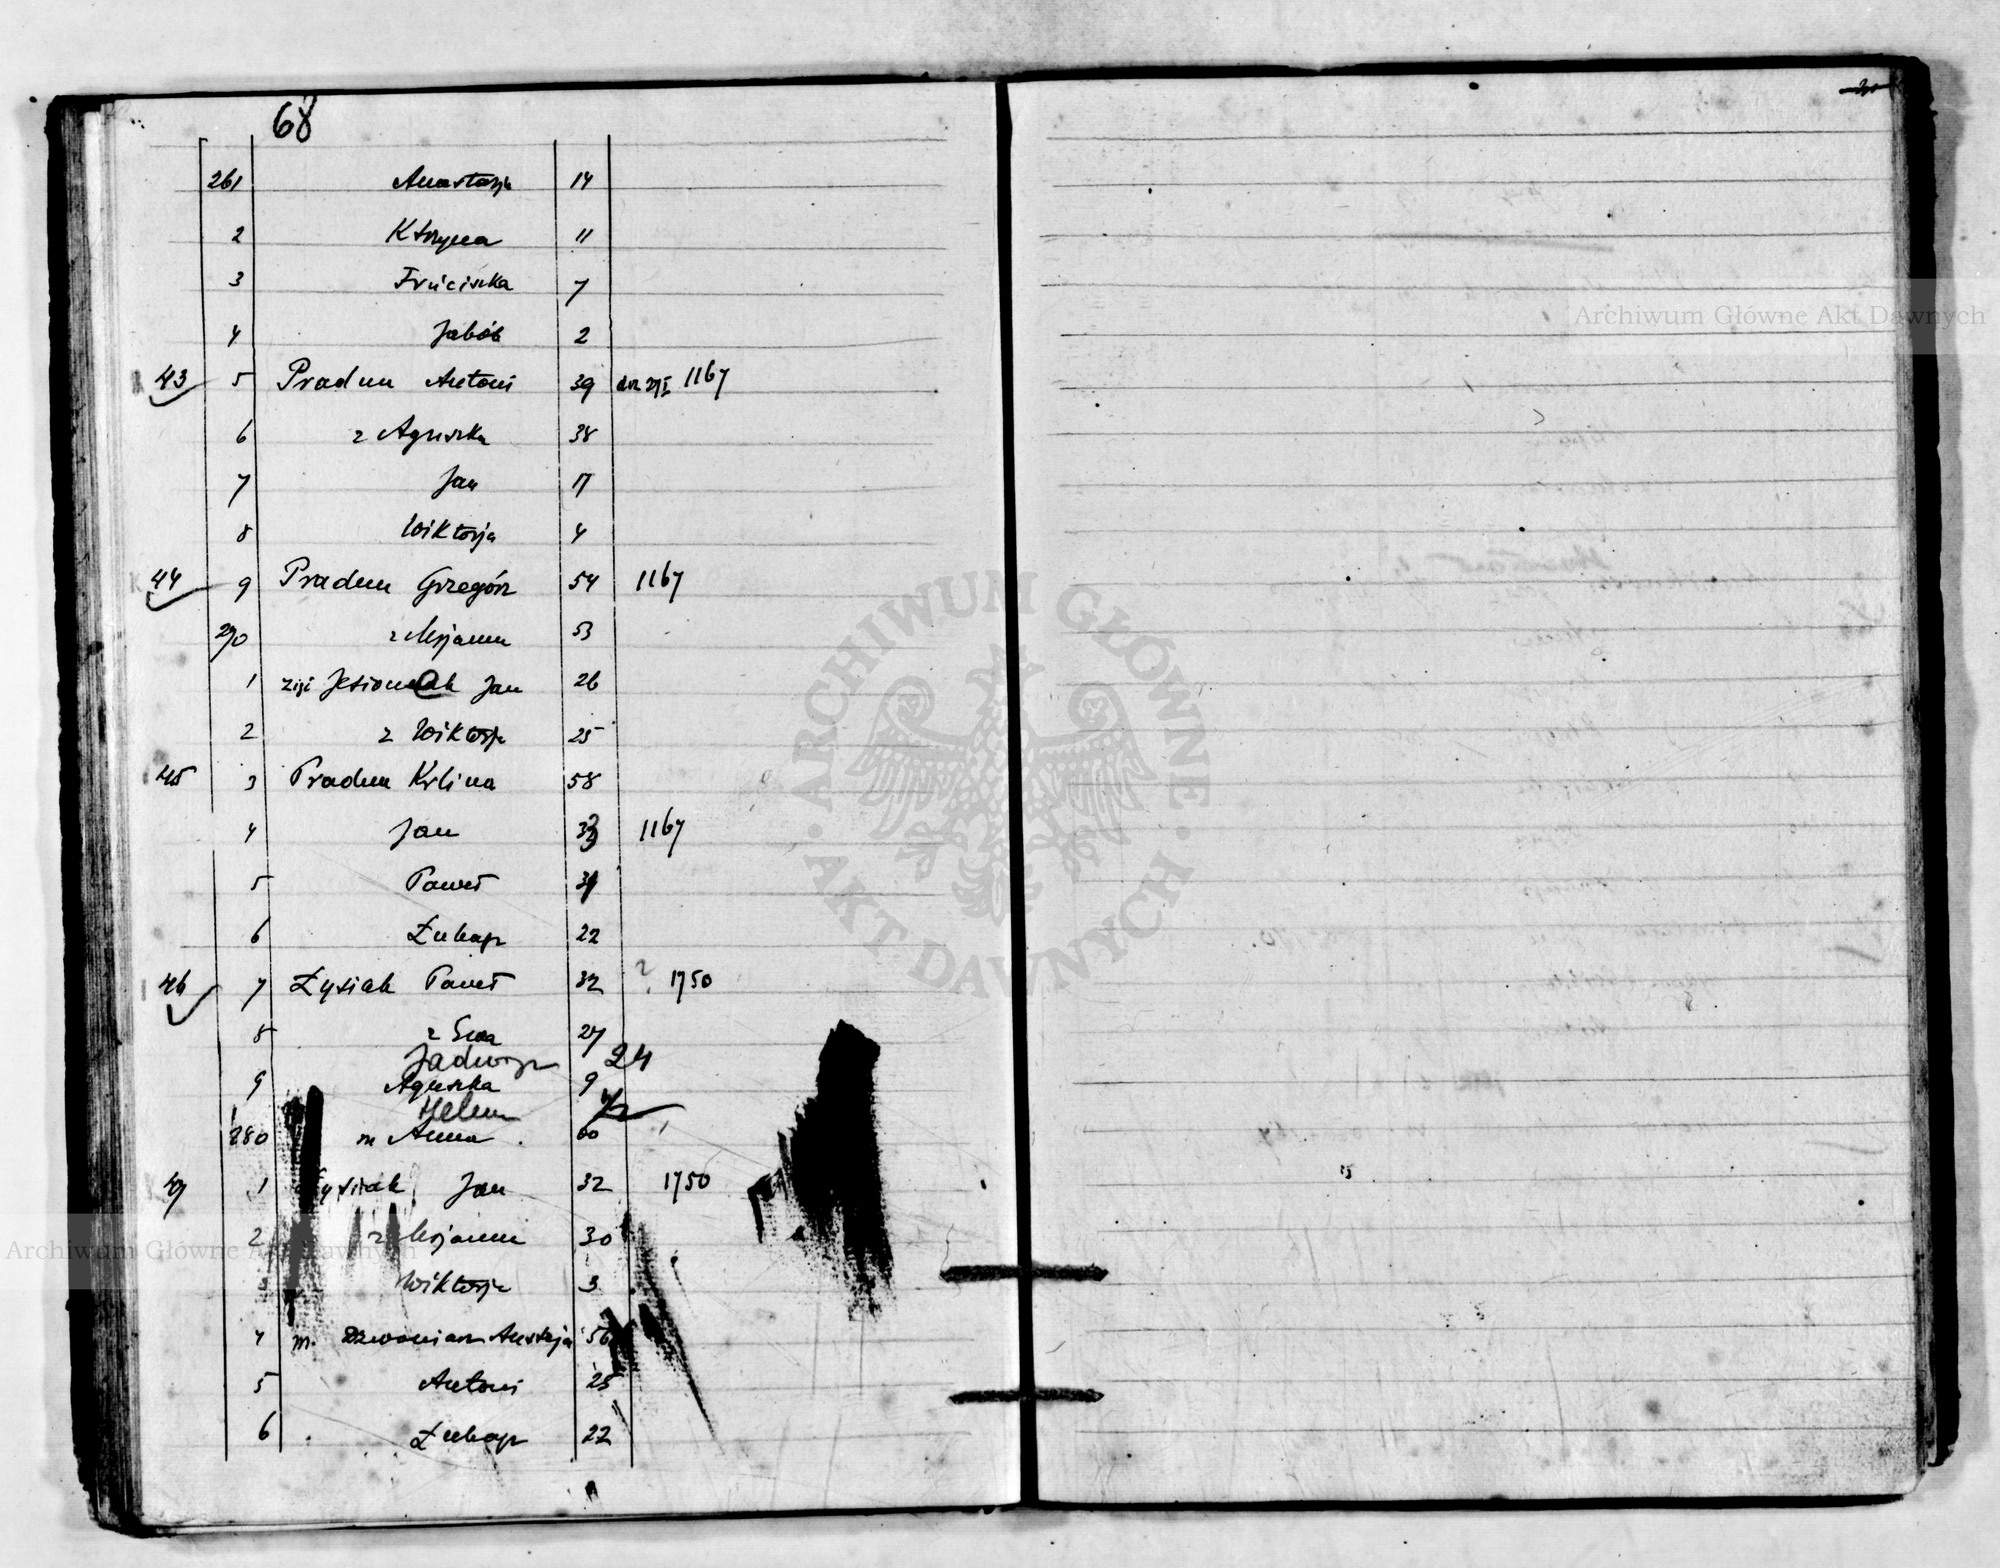 68
261 Anastazja 14
2 Ktrzyna 11
3 Frńciszka 7
4 Jakób 2
43 5 Pradun Antoni 39 1167
6 z Agniszka 38
7 Jan 17
8 Wiktorja 4
44 9 Pradun Grzegórz 54 1167
270 z Mrjanna 53
1 zięć Jesionek Jan 26
2 z Wiktorja 25
45 3 Pradun Krlina 58
4 Jan 1167
5 Paweł
6 Łukasz 22
46 7 Łysiak Paweł 32 ? 1750
8 z Ewa 27
Jadwiga 24
9 Agniszka 9
Helena
280 m Anna 60
47 1 Łysiak Jan 32 1750
2 z Mrjanna 30
3 Wiktorja 3
4 m. Dzwoniarz 56
5 Antoni 25
6 Łukasz 22
Archiwum Główne Akt Dawnych
ARCHIWUM GŁÓWNE · AKT DAWNYCH ·
Archiwum Główne Akt Dawnych